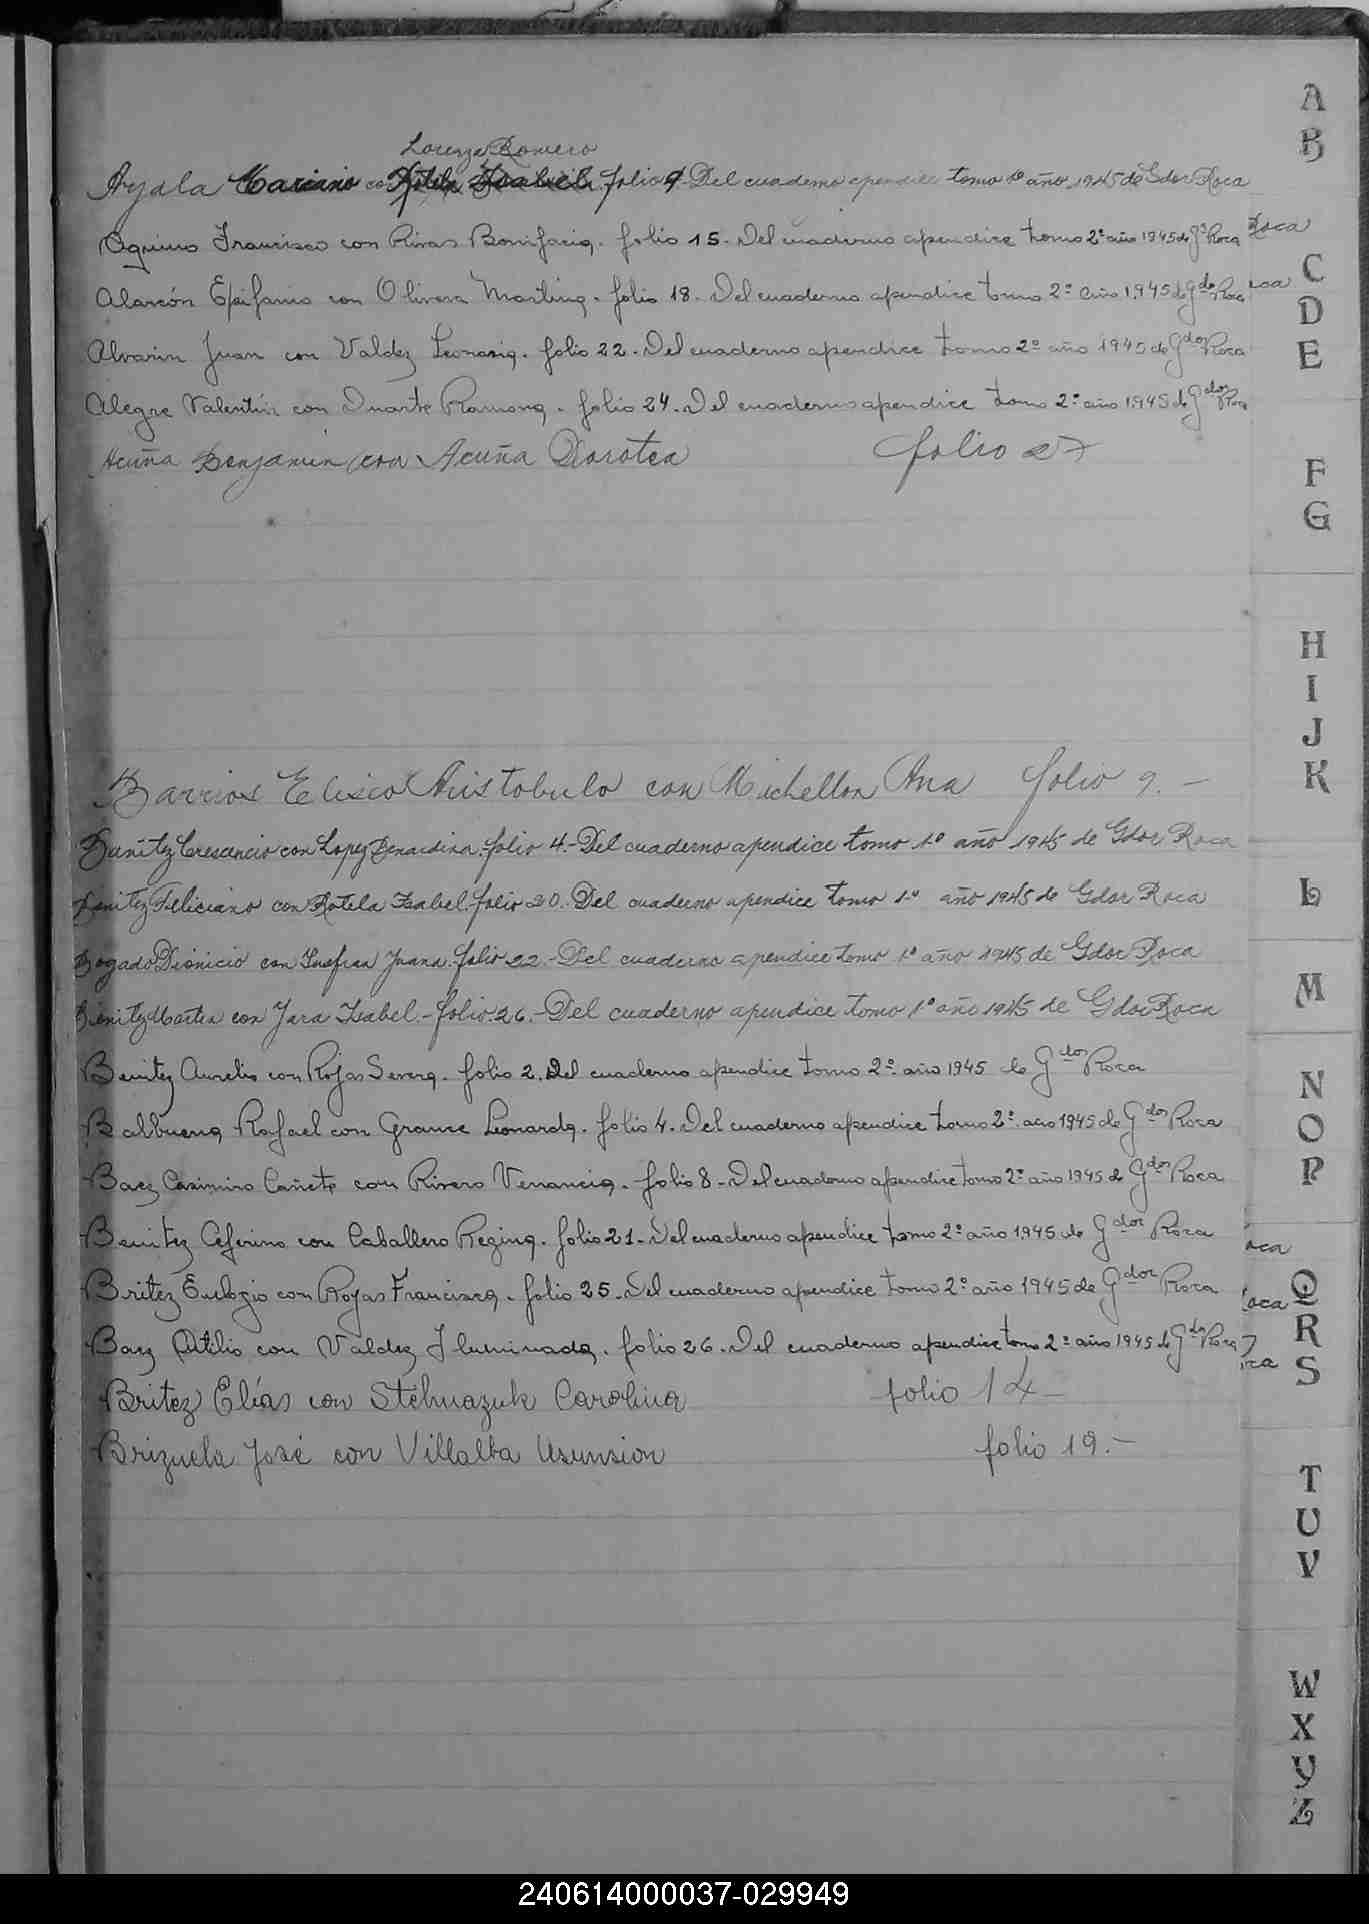 Lorenza Romero
Ayala Mariano co Rotela Isabel. folio 9-Del cuaderno apendice tomo 1º año 1945 de Gdor Roca
Aquino Francisco con Rivas Bonifacia. folio 15-Del cuaderno apendice tomo 2º año 1945 de Gº Roca
Alarcón Epifanio con Olivera Martina. folio 18-Del cuaderno apendice tomo 2º año 1945 de Gdor Roca
Alvarin Juan con Valdez folio 22-Del cuaderno apendice tomo 2º año 1945 de Gdor Roca
Alegre Valentín con Duarte Ramona. folio 24-Del cuaderno apendice tomo 2º año 1945 de Gdor Roca
Acuña Benjamin con Acuña Dorotea folio 27
Barrios Eliseo Aristobulo con Michellon Ana folio 9.-
Benítez Crescencio con Lopez Benardina. folio 4.-Del cuaderno apendice tomo 1º año 1945 de Gdor Roca
Benitez Feliciano con Rotela Isabel. folio 20. Del cuaderno apendice tomo 1º año 1945 de Gdor Roca
Bogado Dionicio con Juana. folio 22.-Del cuaderno apendice tomo 1º año 1945 de Gdor Roca
Benitez Martin con Jara Isabel.-folio 26.-Del cuaderno apendice tomo 1º año 1945 de Gdor Roca
Benitez Aurelio con Rojas Severa. folio 2. Del cuaderno apendice tomo 2º año 1945 de Gdor Roca
Balbuena Rafael con Grance Leonarda. folio 4. Del cuaderno apendice tomo 2º año 1945 de Gdor Roca
Baez Casimiro Cañete con Rivero Venancia. folio 8-Del cuaderno apendice tomo 2º año 1945 de Gdor Roca
Benitez Ceferino con Caballero Regina. folio 21-Del cuaderno apendice tomo 2º año 1945 de Gdor Roca
Britez Eulogio con Rojas Francisca. folio 25-Del cuaderno apendice tomo 2º año 1945 de Gdor Roca
Baez Atilio con Valdez Iluminada. folio 26. Del cuaderno apendice tomo 2º año 1945 de Gdor Roca
Britez Elías con Carolina folio 14-
Brizuela José con Villalba Asunsion folio 19.-
A
B
C
D
E
F
G
H
I
J
K
L
M
N
O
P
Q
R
S
T
U
V
W
X
Y
Z
240614000037-029949